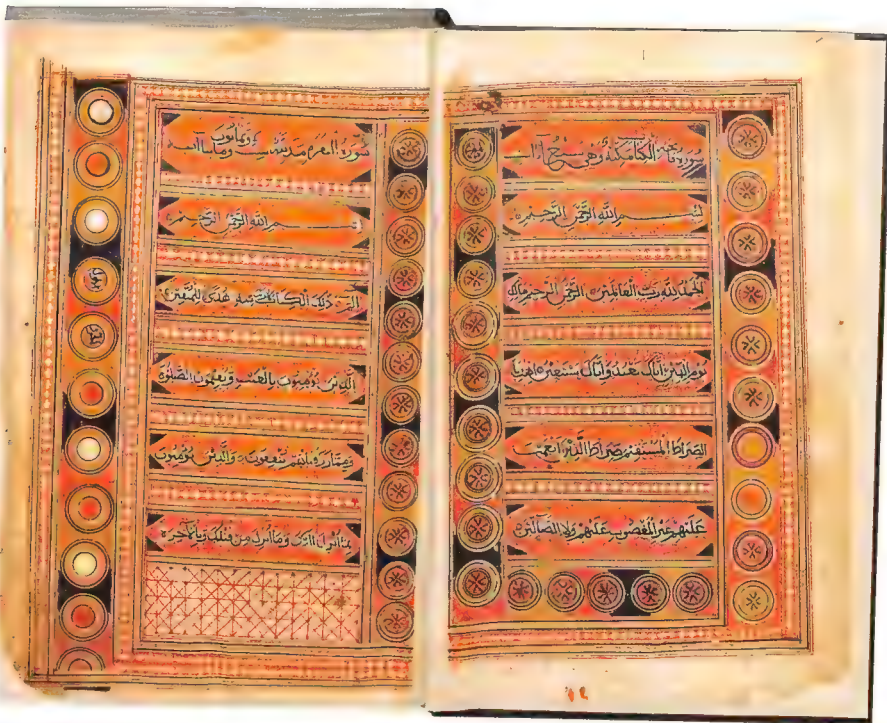 سورة فاتحة الكتاب مكية وهى سبع آيات
بسم الله الرَّحْمٰنِ الرَّحِيمِ
الحمد لله رب العالمين الرحمن الرحيم مالك
يوم الدين اياك نعبد واياك نستعين اهدنا
الصراط المستقيم صراط الذين انعمت
عليهم غير المغضوب عليهم ولا الضالين
سورة البقرة مائتان
بسم الله الرحمن الرحيم
الم ذلك الكتاب لا ريب فيه هدى للمتقين
الذين يؤمنون بالغيب ويقيمون الصلوة
ومما رزقناهم ينفقون والذين يؤمنون
بما أنزل اليك وما أنزل من قبلك وبالآخرة